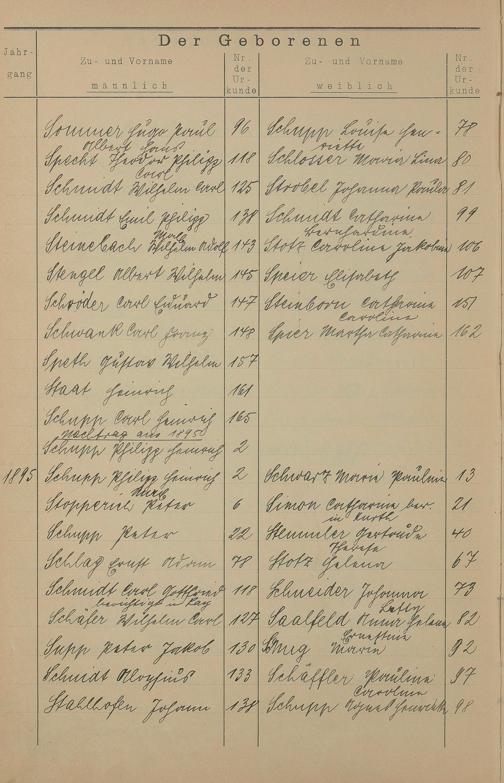 Der Geborenen
Jahr-
gang
Zu- und Vorname
männlich
Nr.
der
Ur-
kunde
Zu- und Vorname
weiblich
Nr.
der
Ur-
kunde
Sommer Hugo Paul 96 Schupp Louise Hen- 78
Albert Hans riette
Specht Theodor Philipp 118 Schlosser Maria Lina 80
Carl
Schmidt Wilhelm Carl 125 Strobel Johanna Paula 81
Schmidt Emil Philipp 138 Schmidt Catharina 99
Bernhardina
Steinebach Wilhelm Adolf 143 Stotz Carolina Jakobina 106
Stengel Albert Wilhelm 145 Speier Elisabeth 107
Schröder Carl Eduard 147 Steinborn Catharina 151
Carolina
Schwank Carl Franz 148 Spier Martha Catharina 162
Speth Gustav Wilhelm 157
Staat Heinrich 161
Schupp Carl Heinrich 165
Nachtrag aus 1895
Schupp Philipp Heinrich 2
1895 Schupp Philipp Heinrich 2 Schwarz Maria Paulina 13
Stopperich Peter 6 Simon Catharina ber. 21
in Kurth
Schupp Peter 22 Stemmler Gertrude 40
Therese
Schlag Ernst Adam 78 Stotz Helena 67
Schmidt Carl Gottfried 118 Schneider Johanna 73
Schäfer Wilhelm Carl 127 Saalfeld Anna Helena 82
Ernestine
Supp Peter Jakob 130 Maria 92
Schmidt Aloysius 133 Schäffler Paulina 97
Carolina
Stahlhofen Johann 138 Schupp Agnes Henriette 98